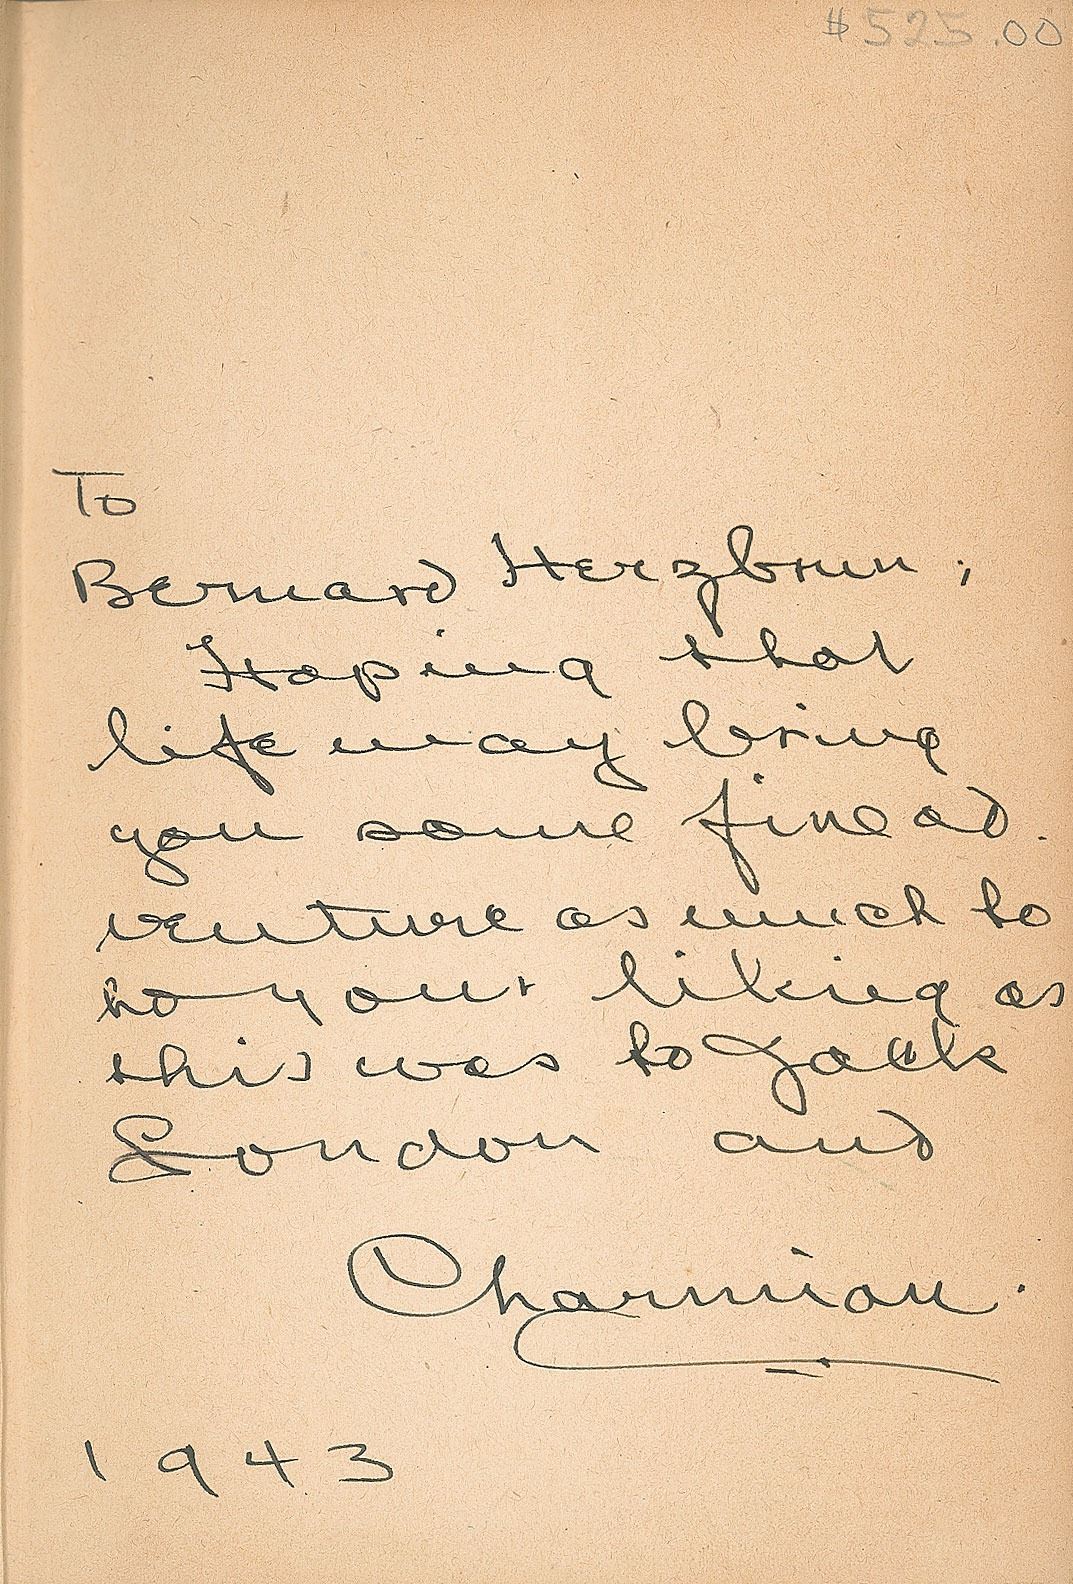 $525.00
To
Bernard Herzbrun;
Hoping that
life may bring
you some fine ad-
venture as much to
to your liking as
this was to Jack
London and
Charmian.
1943